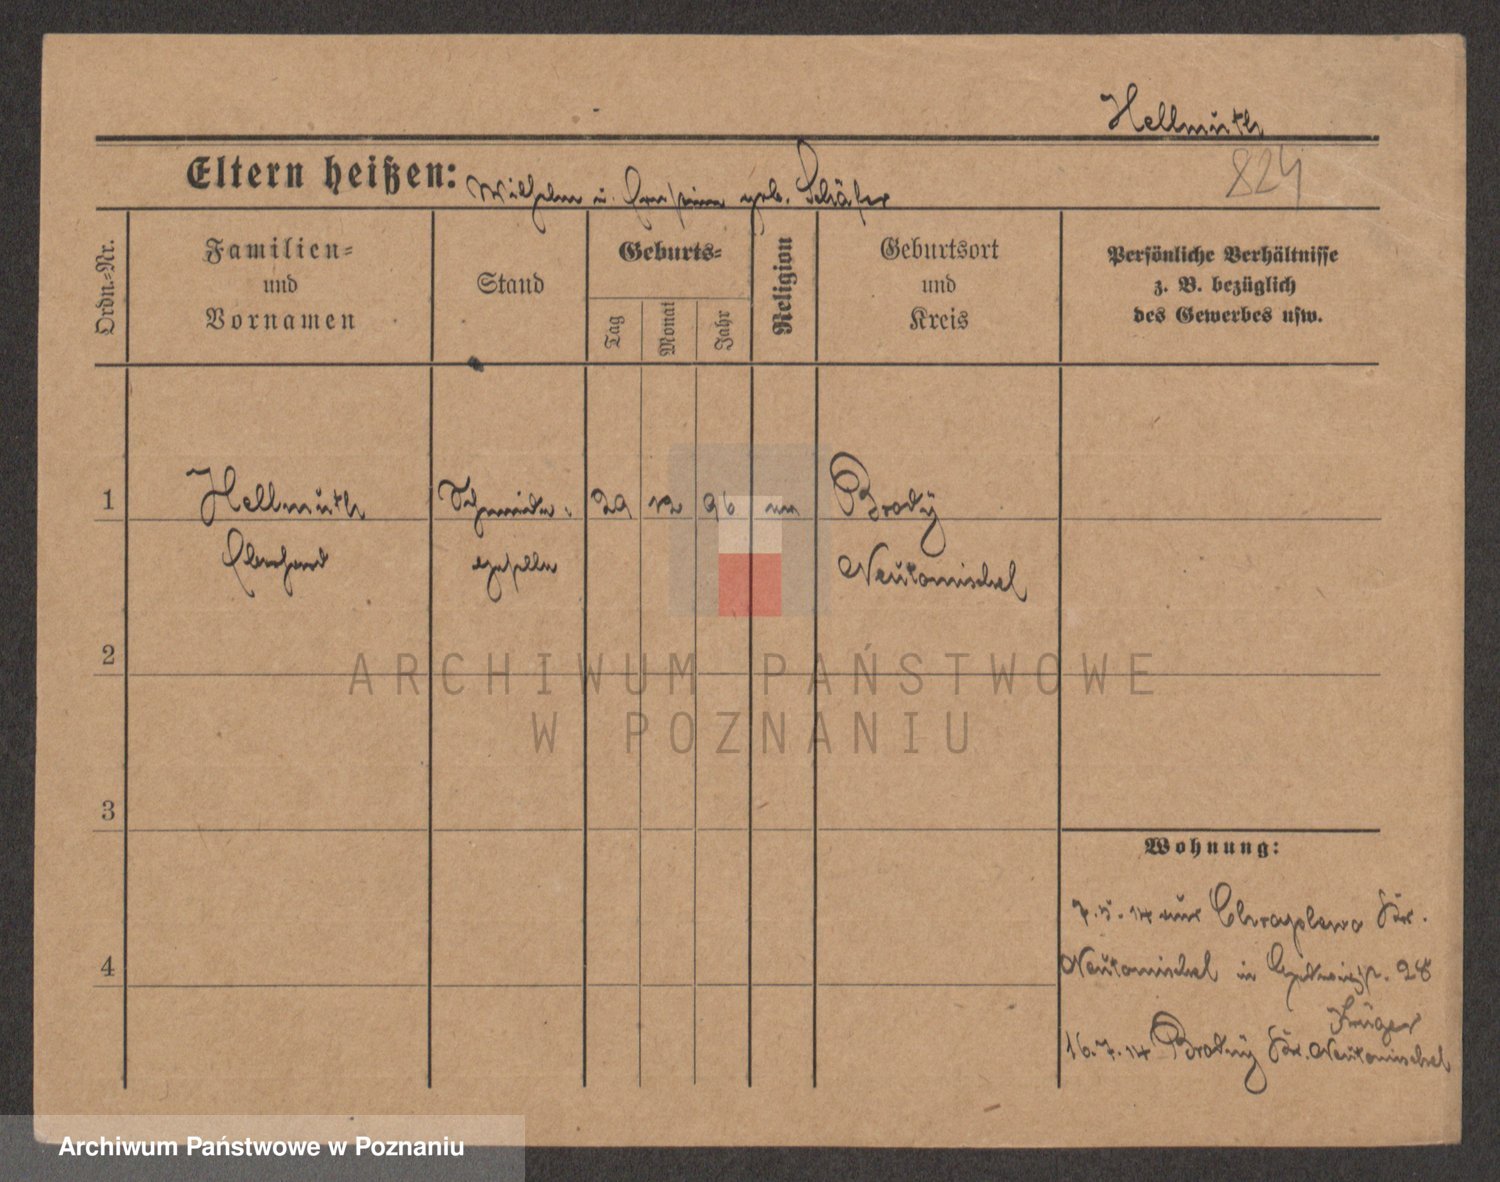 Hellmuth
824
Eltern heißen: Wilhelm u. geb. Schäfer
Ordn.-Nr.
Familien-
und
Vornamen
Stand
Geburts-
Tag
Monat
Jahr
Religion
Geburtsort
und
Kreis
Persönliche Verhältnisse
z. B. bezüglich
des Gewerbes usw.
1 Hellmuth Schneider- 29 12 96 Brody
Eberhard geselle Neutomischel
2
ARCHIWUM PAŃSTWOWE
W POZNANIU
3
Wohnung:
7.5.14 aus Chraplewo Kr.
4
Neutomischel in 28
Krüger
16.7.14 Brody Kr. Neutomischel
Archiwum Państwowe w Poznaniu